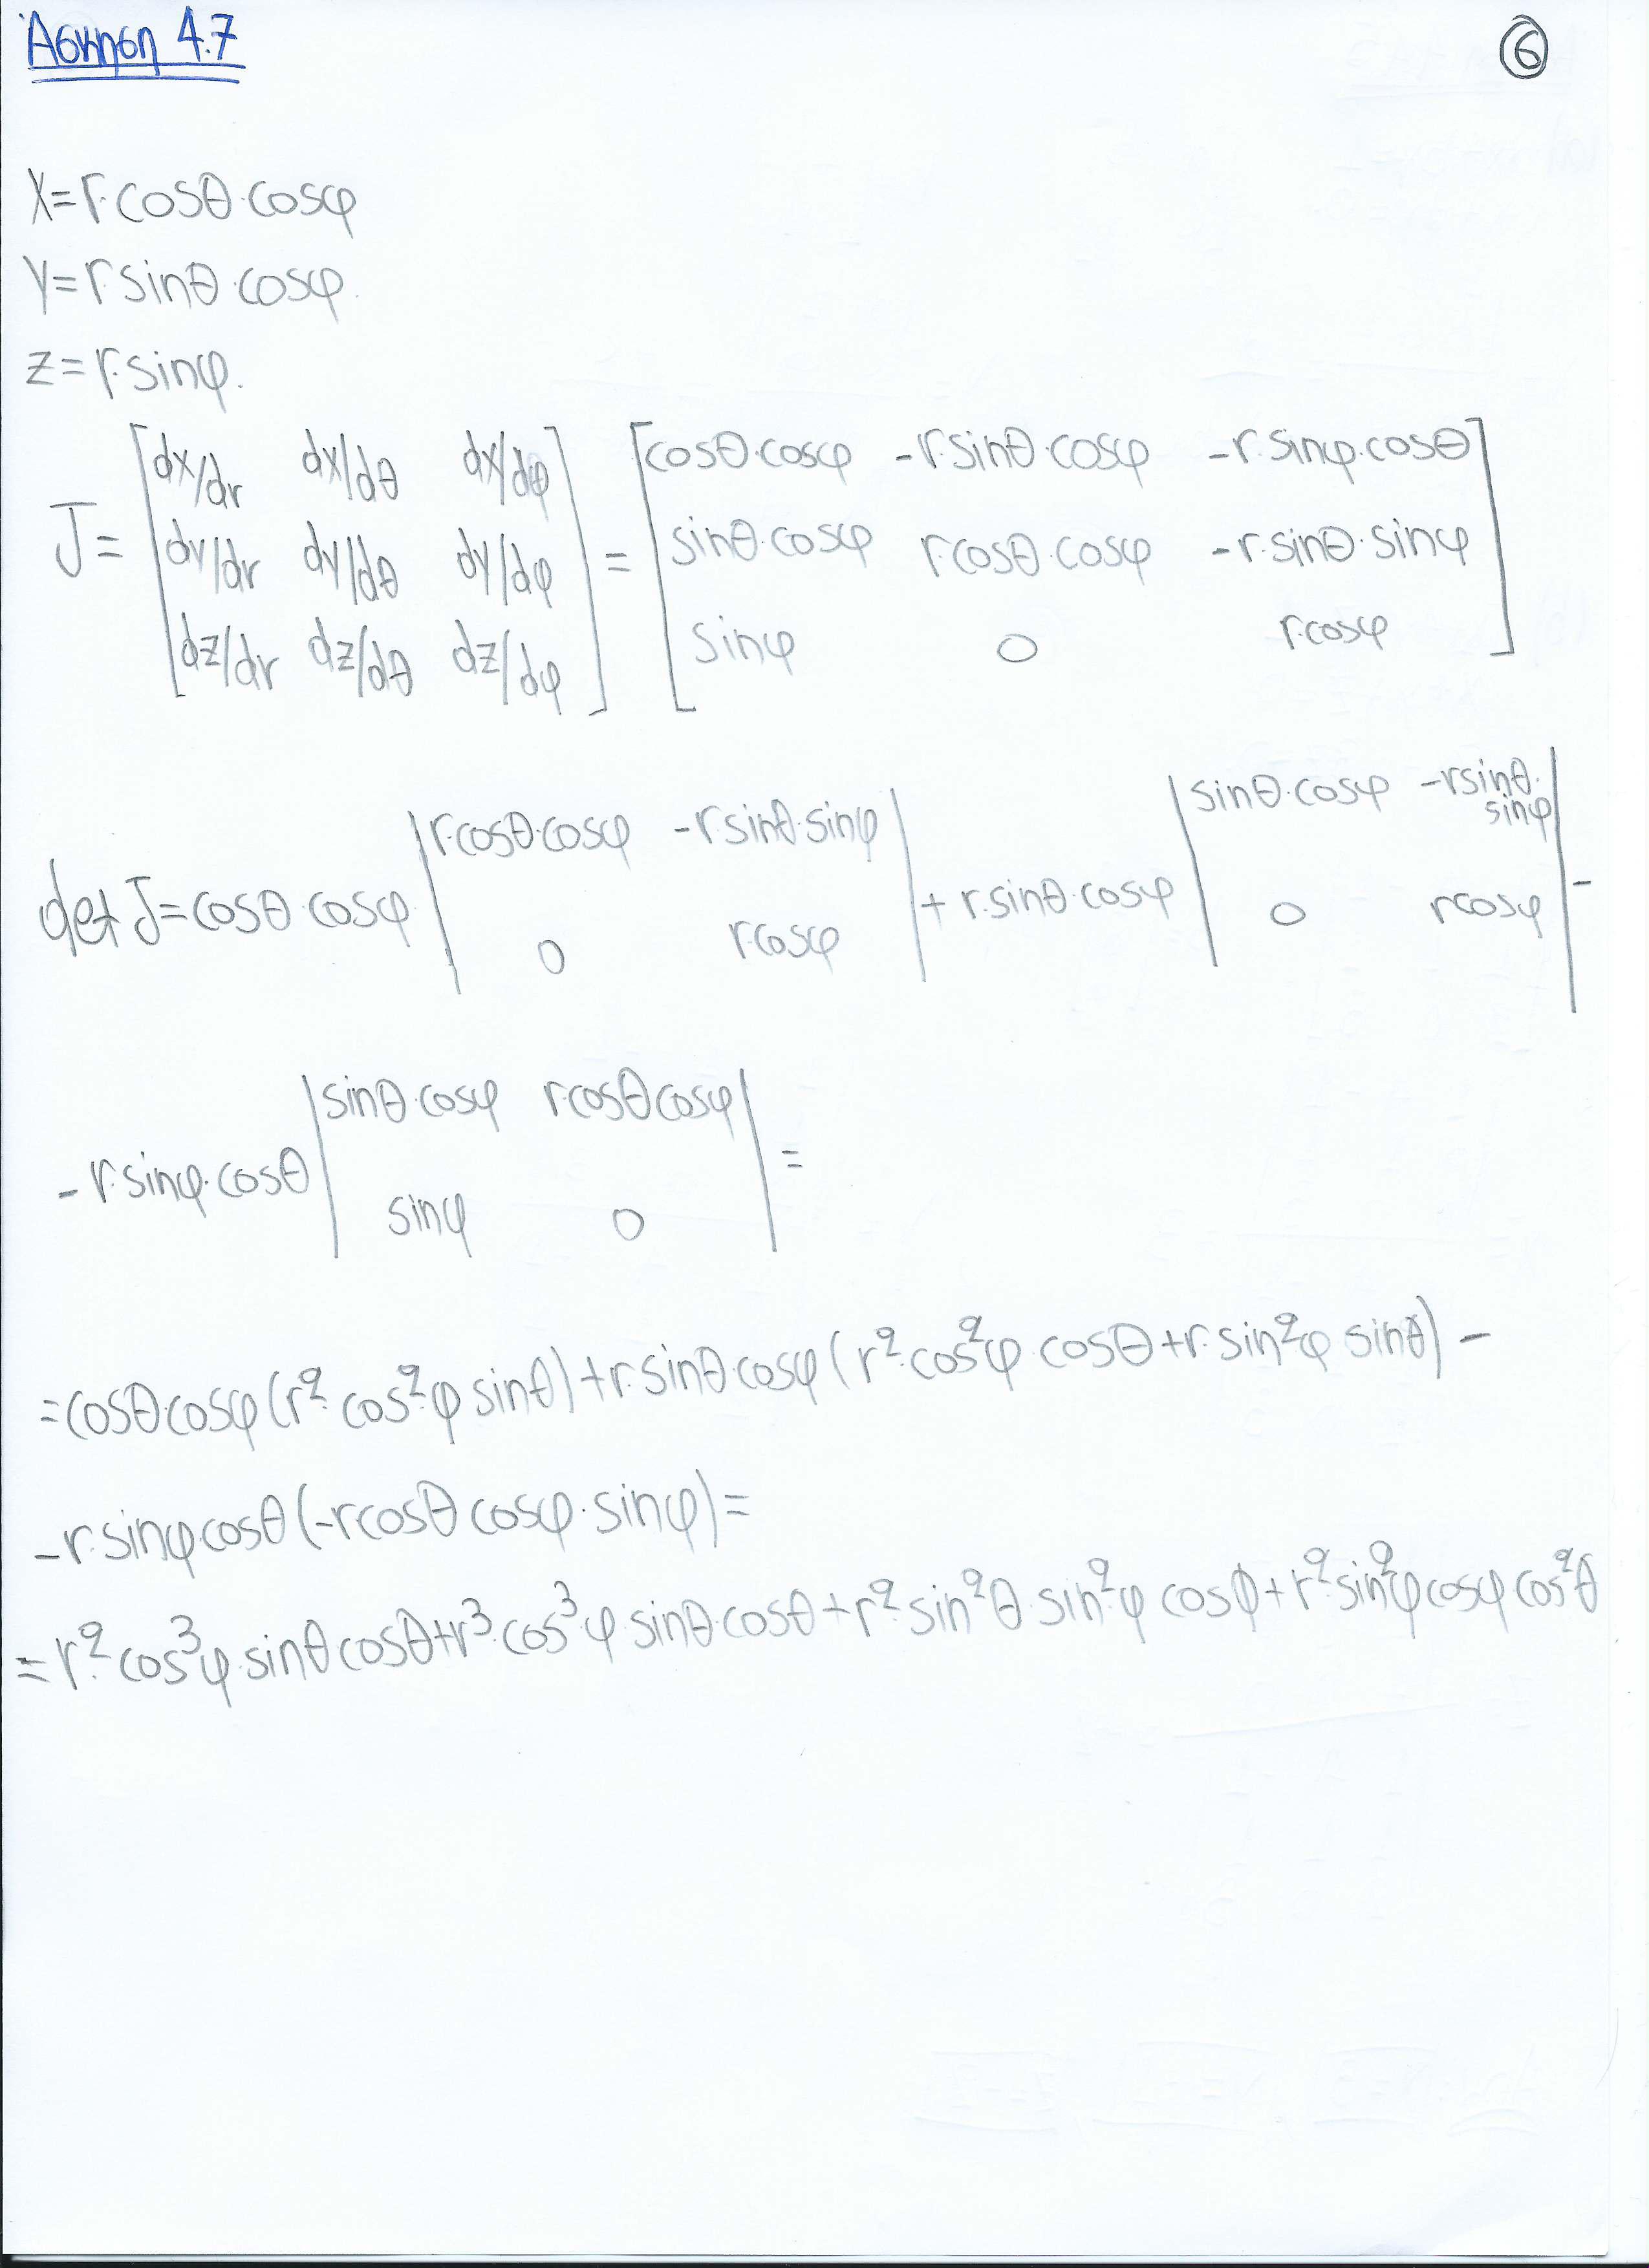 Άσκηση 4.7
6
x=r·cosθ·cosφ
y=r sinθ·cosφ.
z=r·sinφ.
J= [dx/dr dx/dθ dx/dφ] = [cosθ·cosφ -r·sinθ·cosφ -r·sinφ·cosθ]
[dy/dr dy/dθ dy/dφ] [sinθ·cosφ r·cosθ·cosφ -r·sinθ·sinφ]
[dz/dr dz/dθ dz/dφ] [sinφ 0 r·cosφ]
det J=cosθ·cosφ |r·cosθ·cosφ -r·sinθ·sinφ| + r·sinθ·cosφ |sinθ·cosφ -rsinθ·sinφ| -
|0 rcosφ| |0 rcosφ|
-r·sinφ·cosθ |sinθ·cosφ r·cosθcosφ| =
|sinφ 0|
=cosθ·cosφ(r²·cos²φ sinθ)+r·sinθ·cosφ(r²·cos²φ cosθ+r·sin²φ sinθ) -
-r·sinφcosθ(-rcosθcosφ·sinφ)=
=r²·cos³φ·sinθcosθ+r³·cos³φ sinθ·cosθ+r²sin²θ·sin²φ cosφ+r²sin²φcosφcos²θ